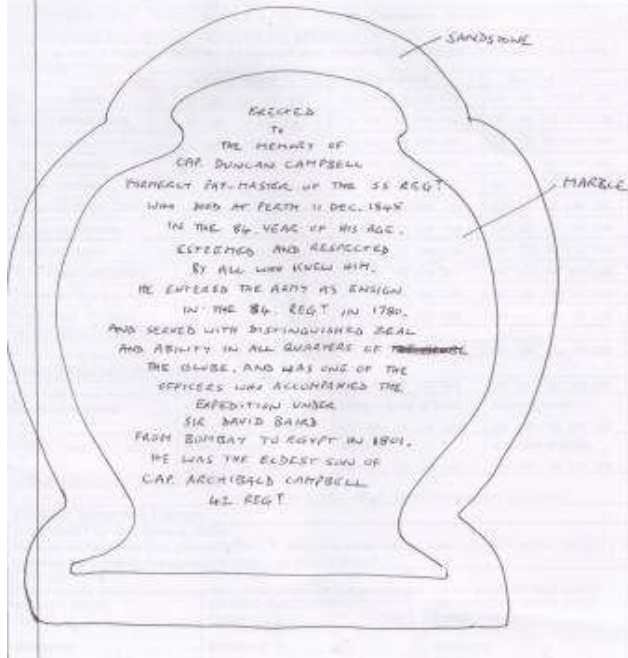 SANDSTONE
ERECTED
TO
THE MEMORY OF
CAP. DUNCAN CAMPBELL
FORMERLY PAY-MASTER OF THE 55 REGT
MARBLE
WHO DIED AT PERTH 11 DEC. 1845
IN THE 84 YEAR OF HIS AGE.
ESTEEMED AND RESPECTED
BY ALL WHO KNEW HIM.
HE ENTERED THE ARMY AS ENSIGN
IN THE 84. REGT IN 1780.
AND SERVED WITH DISTINGUISHED ZEAL
AND ABILITY IN ALL QUARTERS OF
THE GLOBE, AND WAS ONE OF THE
OFFICERS WHO ACCOMPANIED THE
EXPEDITION UNDER
SIR DAVID BAIRD
FROM BOMBAY TO EGYPT IN 1801.
HE WAS THE ELDEST SON OF
CAP. ARCHIBALD CAMPBELL
42 REGT